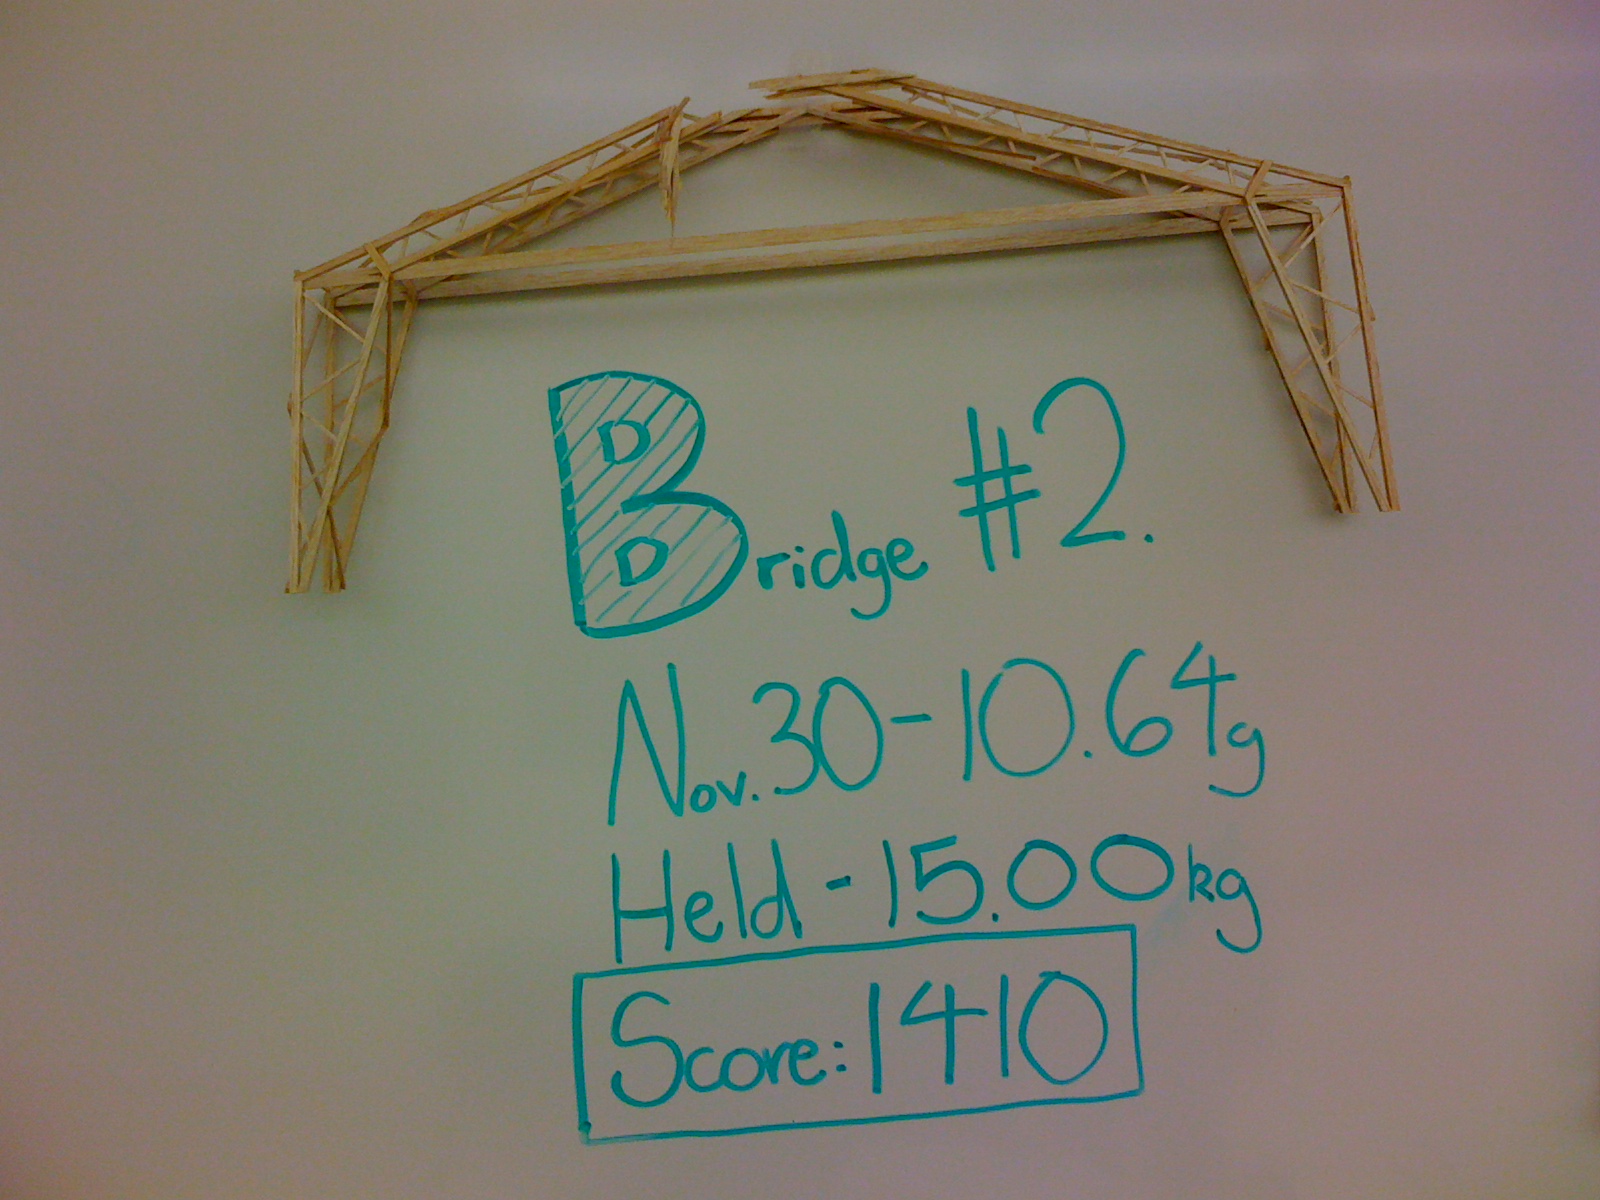 Bridge #2.
Nov. 30 - 10.64g
Held - 15.00kg
Score: 1410